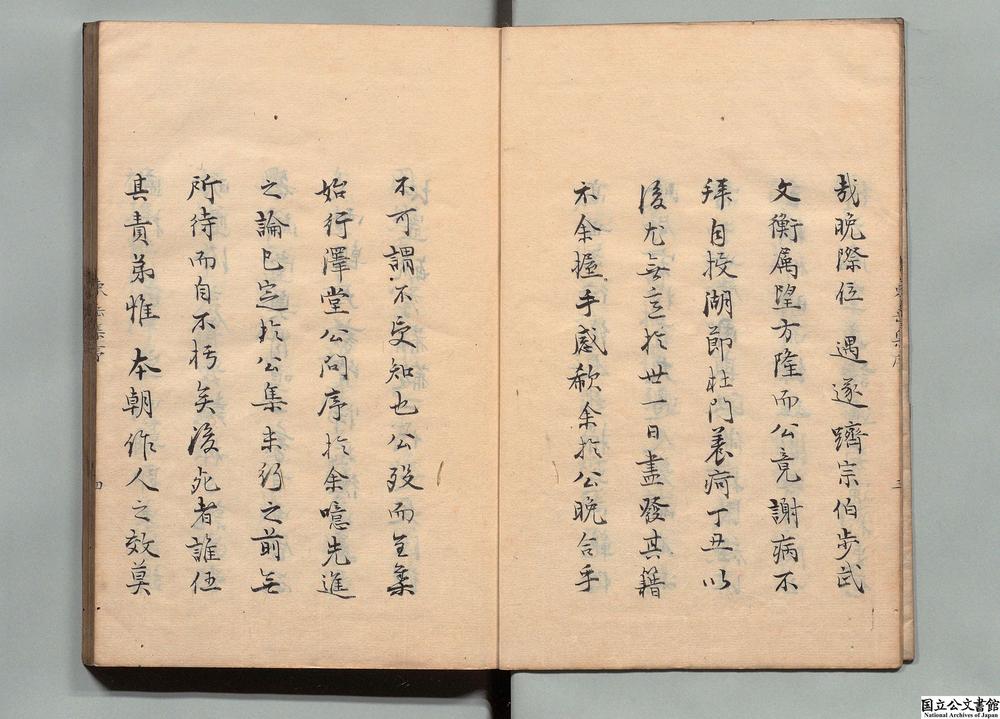 哉晩際位遇遂躋宗伯步武
文衡属望方隆而公竟謝病不
拜自投湖節杜門養疴丁丑以
後尤無意於世一日盡發其籍
示余握手感欷余於公晩合乎
不可謂不受知也公歿而全集
始行澤堂公問序於余噫先進
之論已定於公集未行之前無
所待而自不朽矣後死者誰任
其責弟惟 本朝作人之效莫
国立公文書館
National Archives of Japan